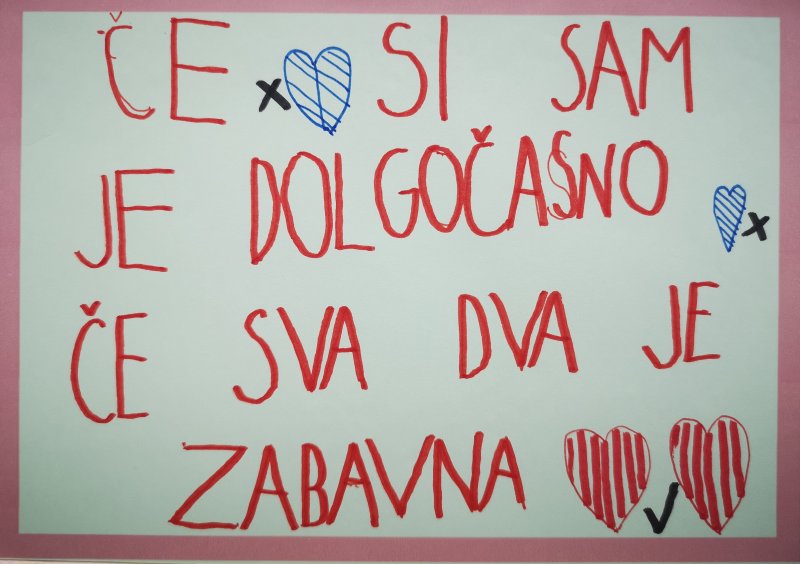 ČE SI SAM
JE DOLGOČASNO
ČE SVA DVA JE
ZABAVNA